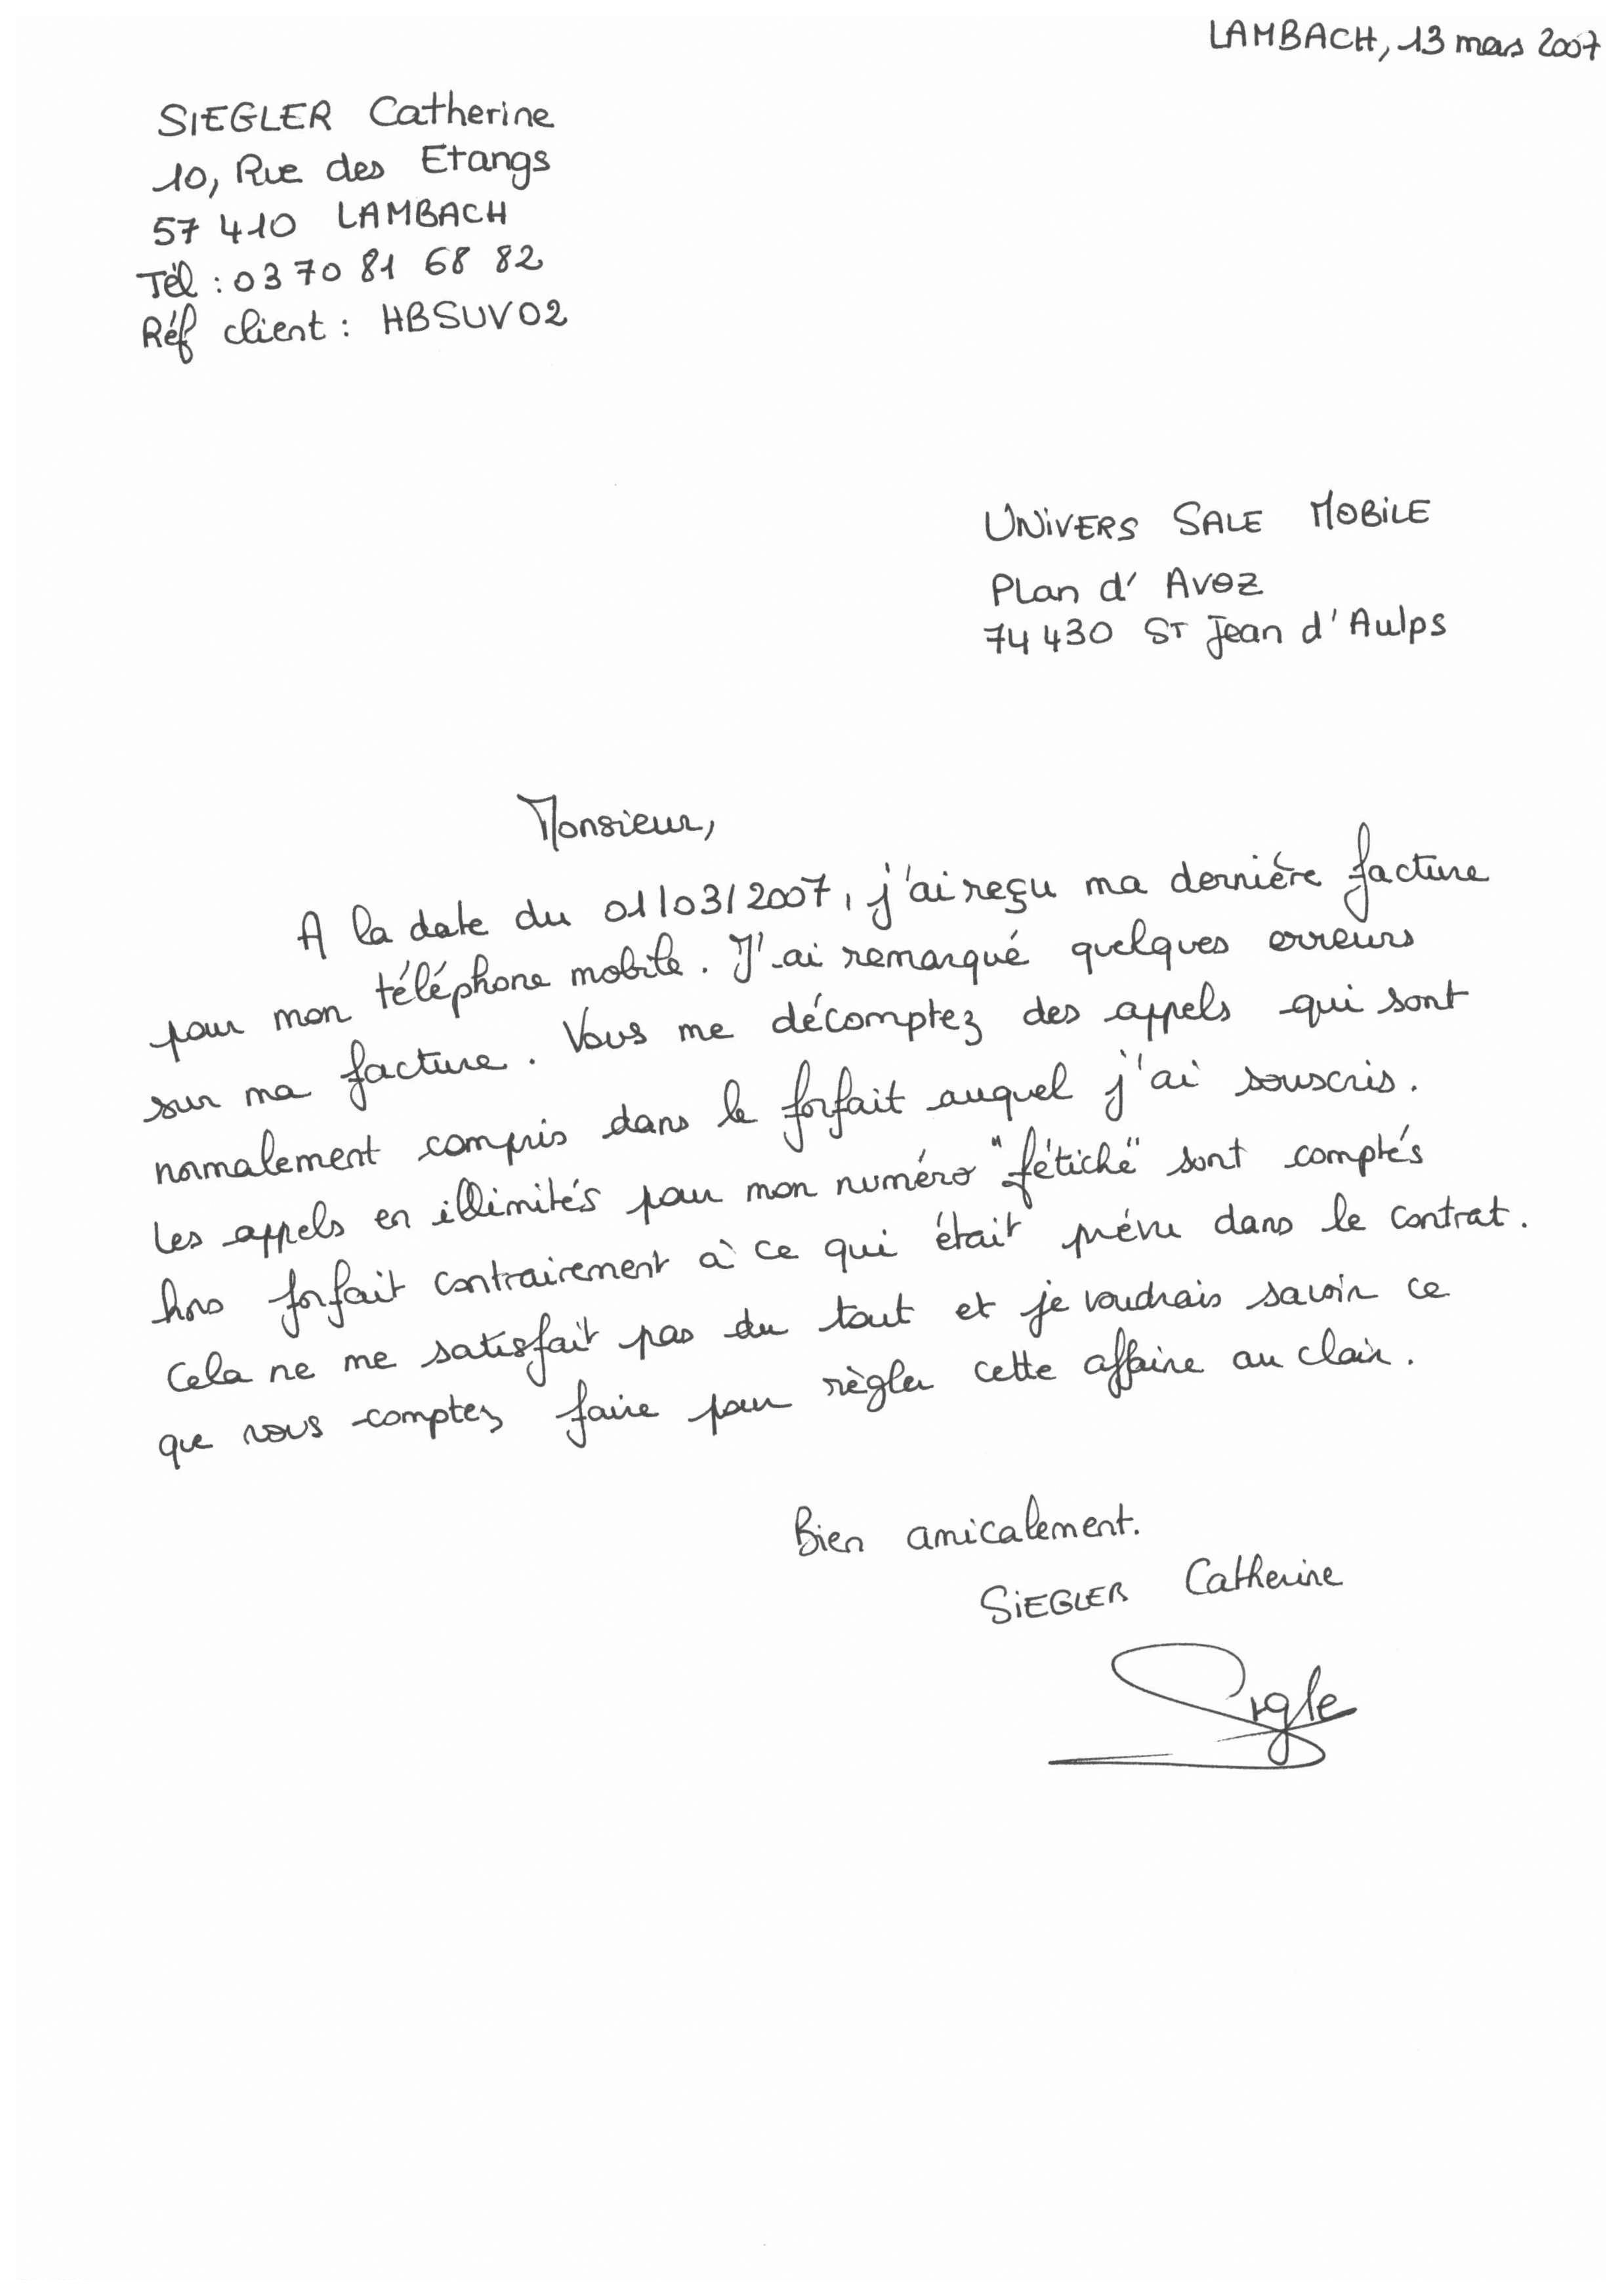 LAMBACH, 13 mars 2007
SIEGLER Catherine
10, Rue des Etangs
57 410 LAMBACH
Tél : 03 70 81 68 82
Réf client : HBSUV02
UNIVERS SALE MOBILE
Plan d' Avoz
74 430 ST Jean d'Aulps
Monsieur,
A la date du 01/03/2007, j'ai reçu ma dernière facture
pour mon téléphone mobile. J'ai remarqué quelques erreurs
sur ma facture. Vous me décomptez des appels qui sont
normalement compris dans le forfait auquel j'ai souscris.
Les appels en illimités pour mon numéro "fétiche" sont comptés
hors forfait contrairement à ce qui était prévu dans le contrat.
Cela ne me satisfait pas du tout et je voudrais savoir ce
que vous comptez faire pour règler cette affaire au clair.
Bien amicalement.
SIEGLER Catherine
Sigle